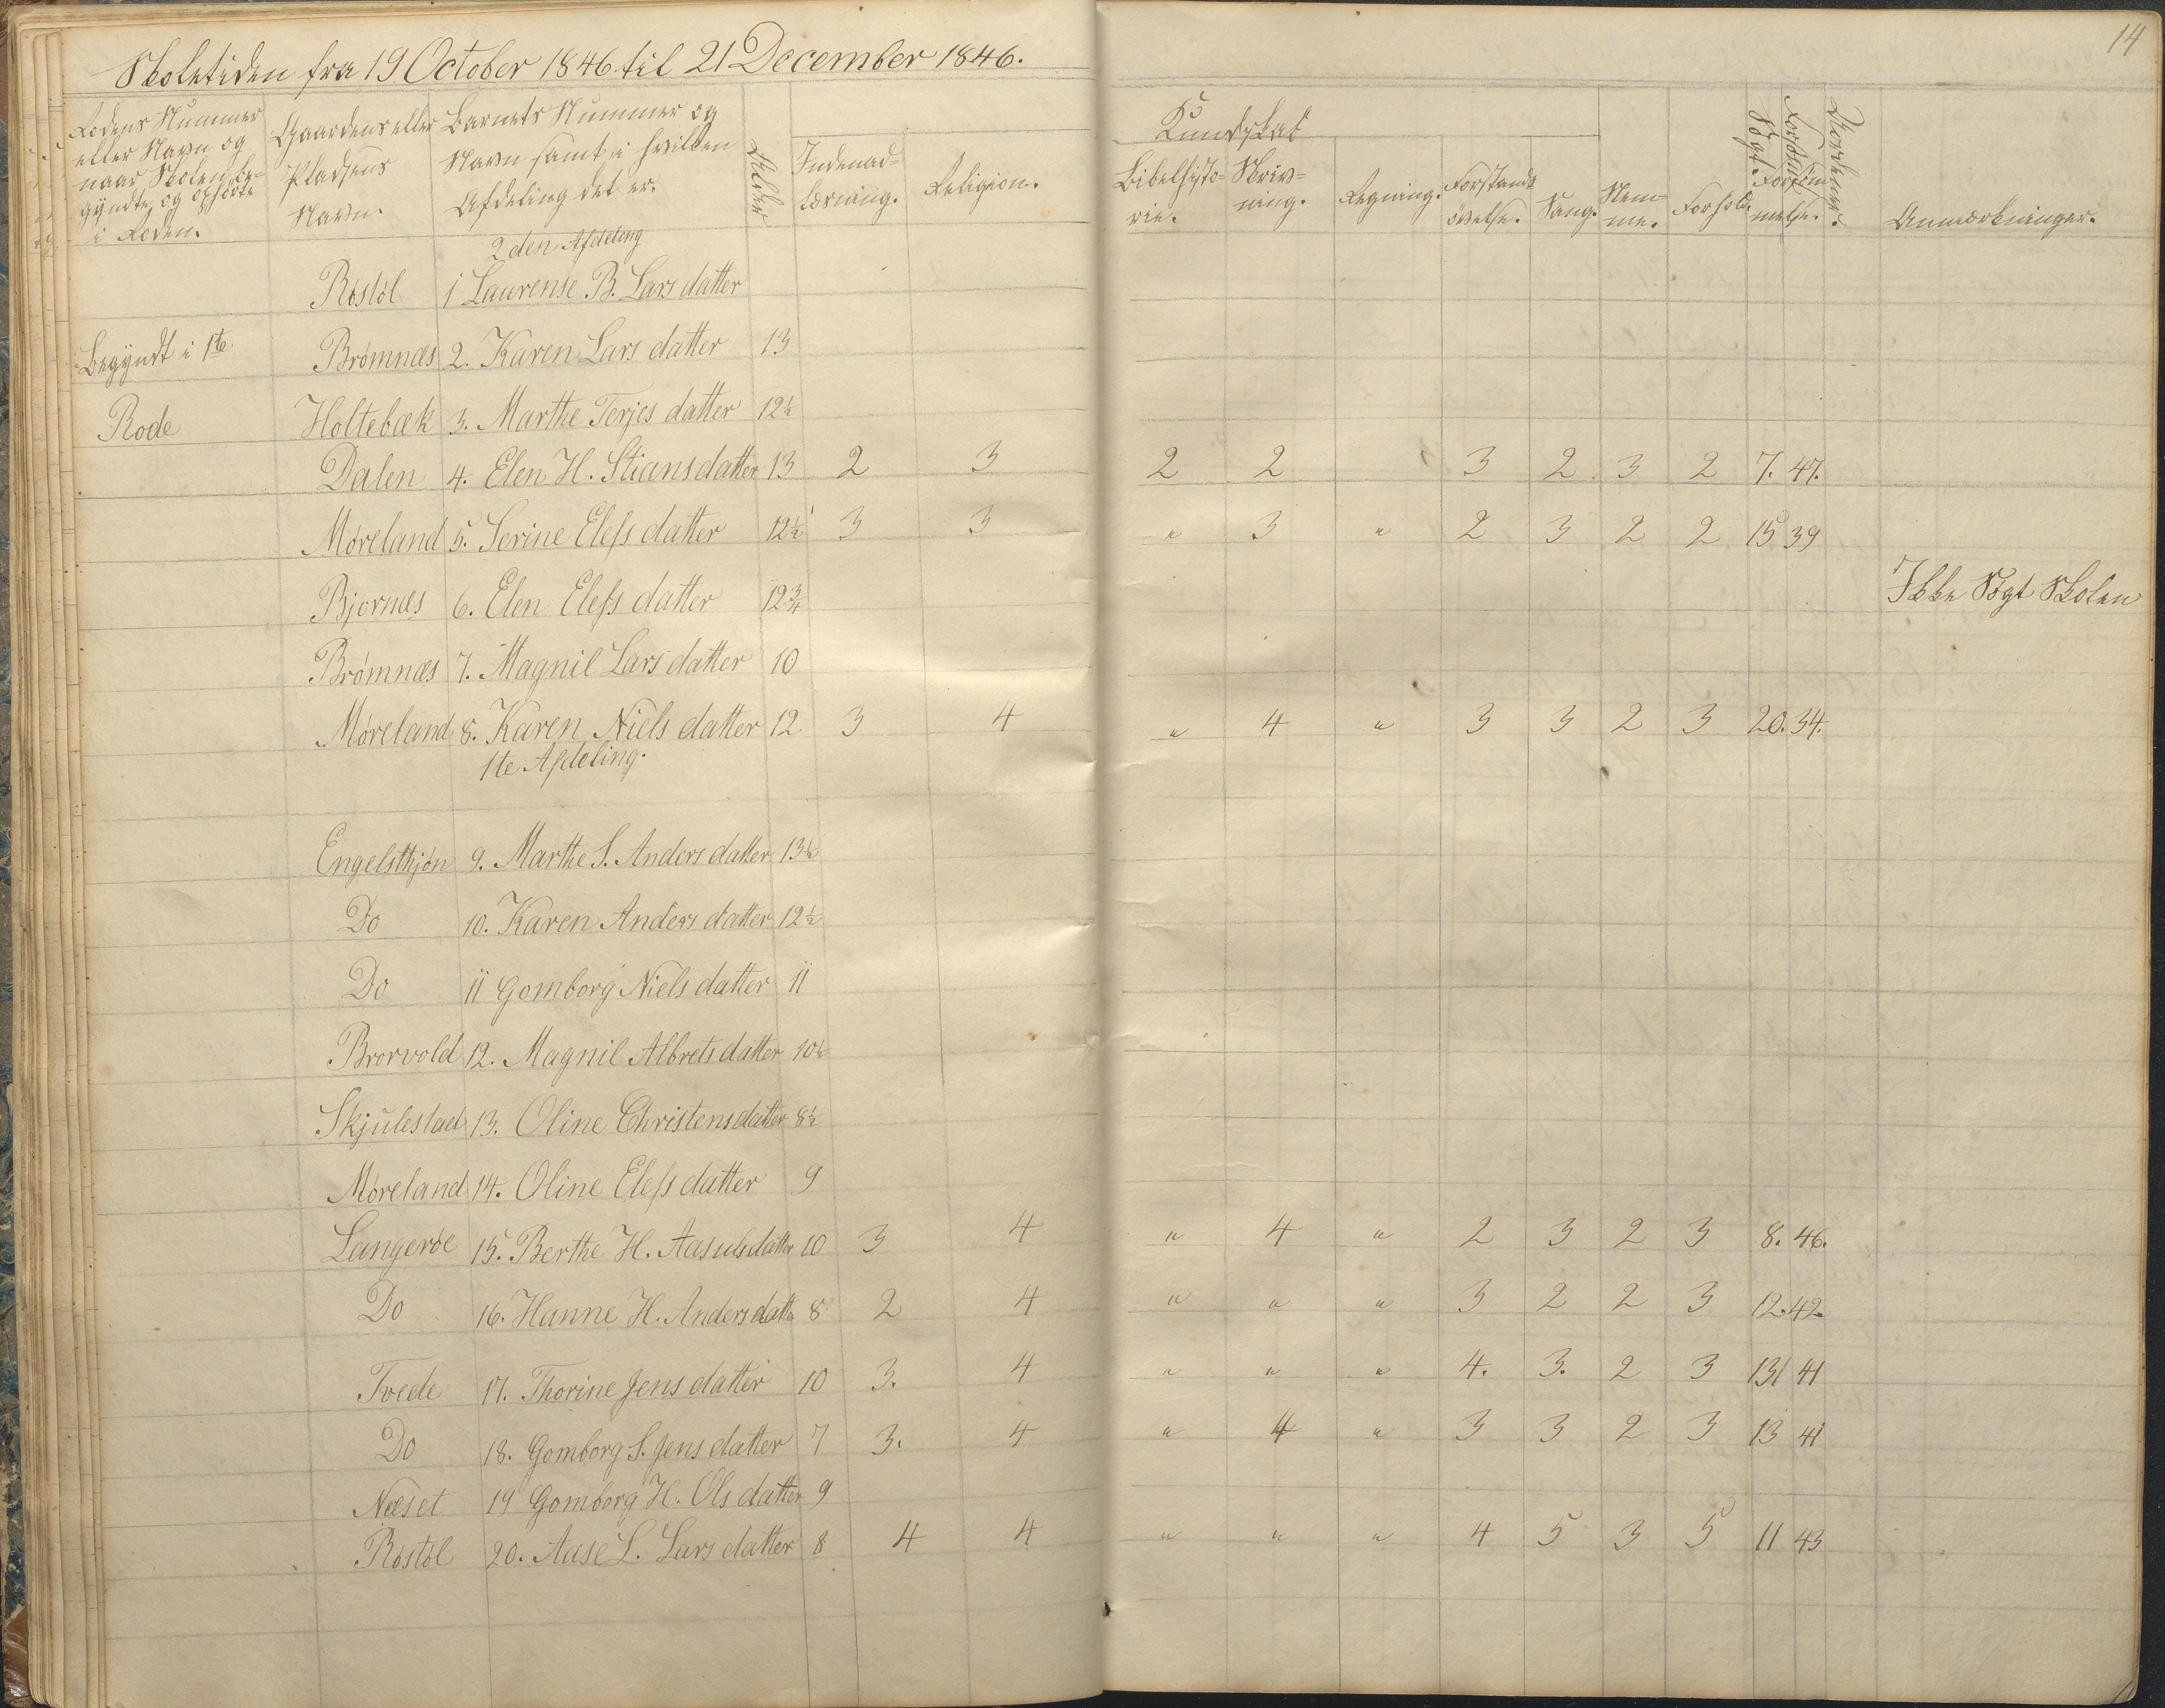 14
Skoletiden fra 19 October 1846 til 21 December 1846.
Rodens Nummer eller Navn og naar Skolen begyndte og ophørte i Roden.
Gaardens eller Pladsens Navn.
Barnets Nummer og Navn samt i hvilken Afdeling det er.
Alder
Indenadlæsning.
Religion.
Kundskab
Bibelhistorie.
Skrivning.
Regning.
Forstandsøvelse.
Sang.
Nemme.
Forhold.
Søgt.
Forsømmelse.
Anmærkninger.
2den Afdeling
Røstøl 1 Laurense B. Lars datter
Begyndt i 1te Brømnæs 2. Karen Lars datter 13
Rode Holtebæk 3. Marthe Terjes datter 12½
Dalen 4. Elen H. Stians datter 13 2 3 2 2 3 2 3 2 7. 47.
Møreland 5. Serine Elefs datter 12½ 3 3 " 3 " 2 3 2 2 15 39
Bjornæs 6. Elen Elefs datter 12¾ Ikke Søgt Skolen
Brømnæs 7. Magnil Lars datter 10
Møreland 8. Karen Niels datter 12 3 4 " 4 " 3 3 2 3 20. 34.
1te Afdeling.
Engelsthjøn 9. Marthe S. Anders datter 13½
Do 10. Karen Anders datter 12½
Do 11 Gomborg Niels datter 11
Brorvold 12. Magnil Albrets datter 10½
Skjulestad 13. Oline Christens datter 8½
Møreland 14. Oline Elefs datter 9
Langerøe 15. Berthe H. Aasuls datter 10 3 4 " 4 " 2 3 2 3 8. 46.
Do 16. Hanne H. Anders datter 8 2 4 " " " 3 2 2 3 12. 42.
Tvede 17. Thorine Jens datter 10 3. 4 " " " 4. 3. 2 3 13 41
Do 18. Gomborg S. Jens datter 7 3. 4 " 4 " 3 3 2 3 13 41
Næset 19 Gomborg H. Ols datter 9
Røstøl 20. Aase L. Lars datter 8 4 4 " " " 4 5 3 5 11 43